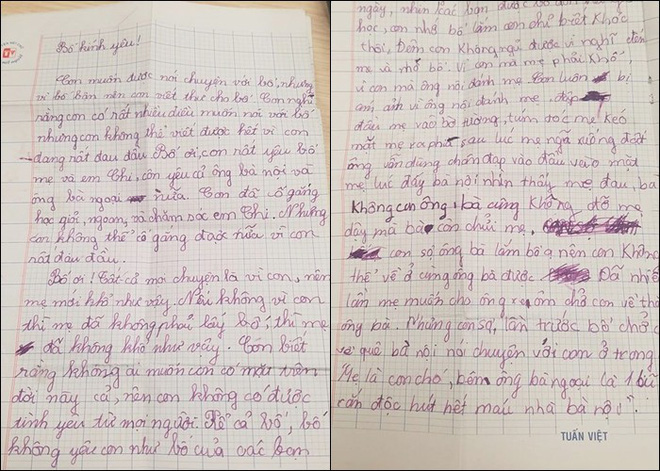 Bố kính yêu!
Con muốn được nói chuyện với bố, nhưng
vì bố bận nên con viết thư cho bố. Con nghĩ
rằng con có rất nhiều điều muốn nói với bố
nhưng con không thể viết được hết vì con
đang rất đau đầu. Bố ơi, con rất yêu bố
mẹ và em Chi, con yêu cả ông bà nội và
ông bà ngoại nữa. Con đã cố gắng
học giỏi, ngoan, và chăm sóc em Chi. Nhưng
con không thể cố gắng được nữa vì con
rất đau đầu.
Bố ơi! Tất cả mọi chuyện là vì con, nên
mẹ mới khổ như vậy. Nếu không vì con
thì mẹ đã không phải lấy bố, thì mẹ
đã không khổ như vậy. Con biết
rằng không ai muốn con có mặt trên
đời này cả, nên con không có được
tình yêu từ mọi người. Kể cả bố, bố
không yêu con như bố của các bạn
ngày, nhìn các bạn được bố
học, con nhớ bố lắm con chỉ biết khóc
thôi, Đêm con không ngủ được vì nghĩ đến
mẹ và nhớ bố. Vì con mà mẹ phải khổ,
vì con mà ông nội đánh mẹ. Con luôn bị
ám ảnh vì ông nội đánh mẹ, đập
đầu mẹ vào bờ tường, túm tóc mẹ kéo
mất mẹ ra phá sau lúc mẹ ngã xuống đất
ông vẫn dùng chân đạp vào đầu vào mặt
mẹ, lúc đấy bà nội nhìn thấy mẹ đau, bà
không can ông, bà cũng không đỡ mẹ
dậy mà bà còn chửi mẹ,
con sợ ông bà lắm bố ạ, nên con không
thể về ở cùng ông bà được. Đã nhiề
lần mẹ muốn cho ông chở con về thă
ông bà. Nhưng con sợ, lần trước bố chở c
về quê bà nội nói chuyện với con ở trong
"Mẹ là con chó, bên ông bà ngoại là 1 bũ
cắn độc hút hết máu nhà bà nội".
TUẤN VIỆT